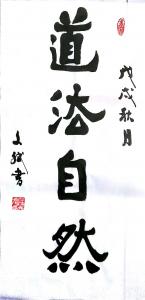 道法自然
戊戌秋月
文斌書